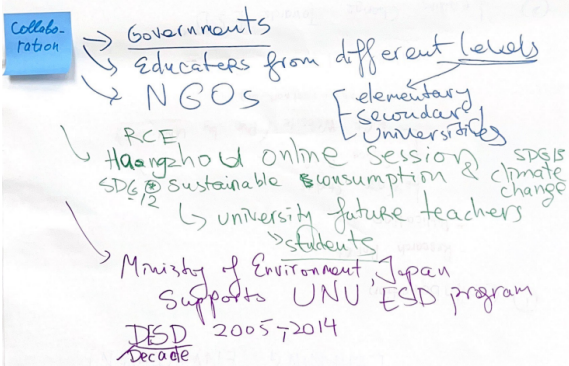 Collabo-
ration
→ Governments
↘ Educaters from different levels
↘ NGOs
elementary
secondary
universitites
RCE
↘ Haangzhou online session
SDG 12 Sustainable consumption & climate change
SDG 13
↳ university future teachers
↘ students
↘ Ministry of Environment, Japan
Supports UNU ESD program
DESD 2005-2014
Decade